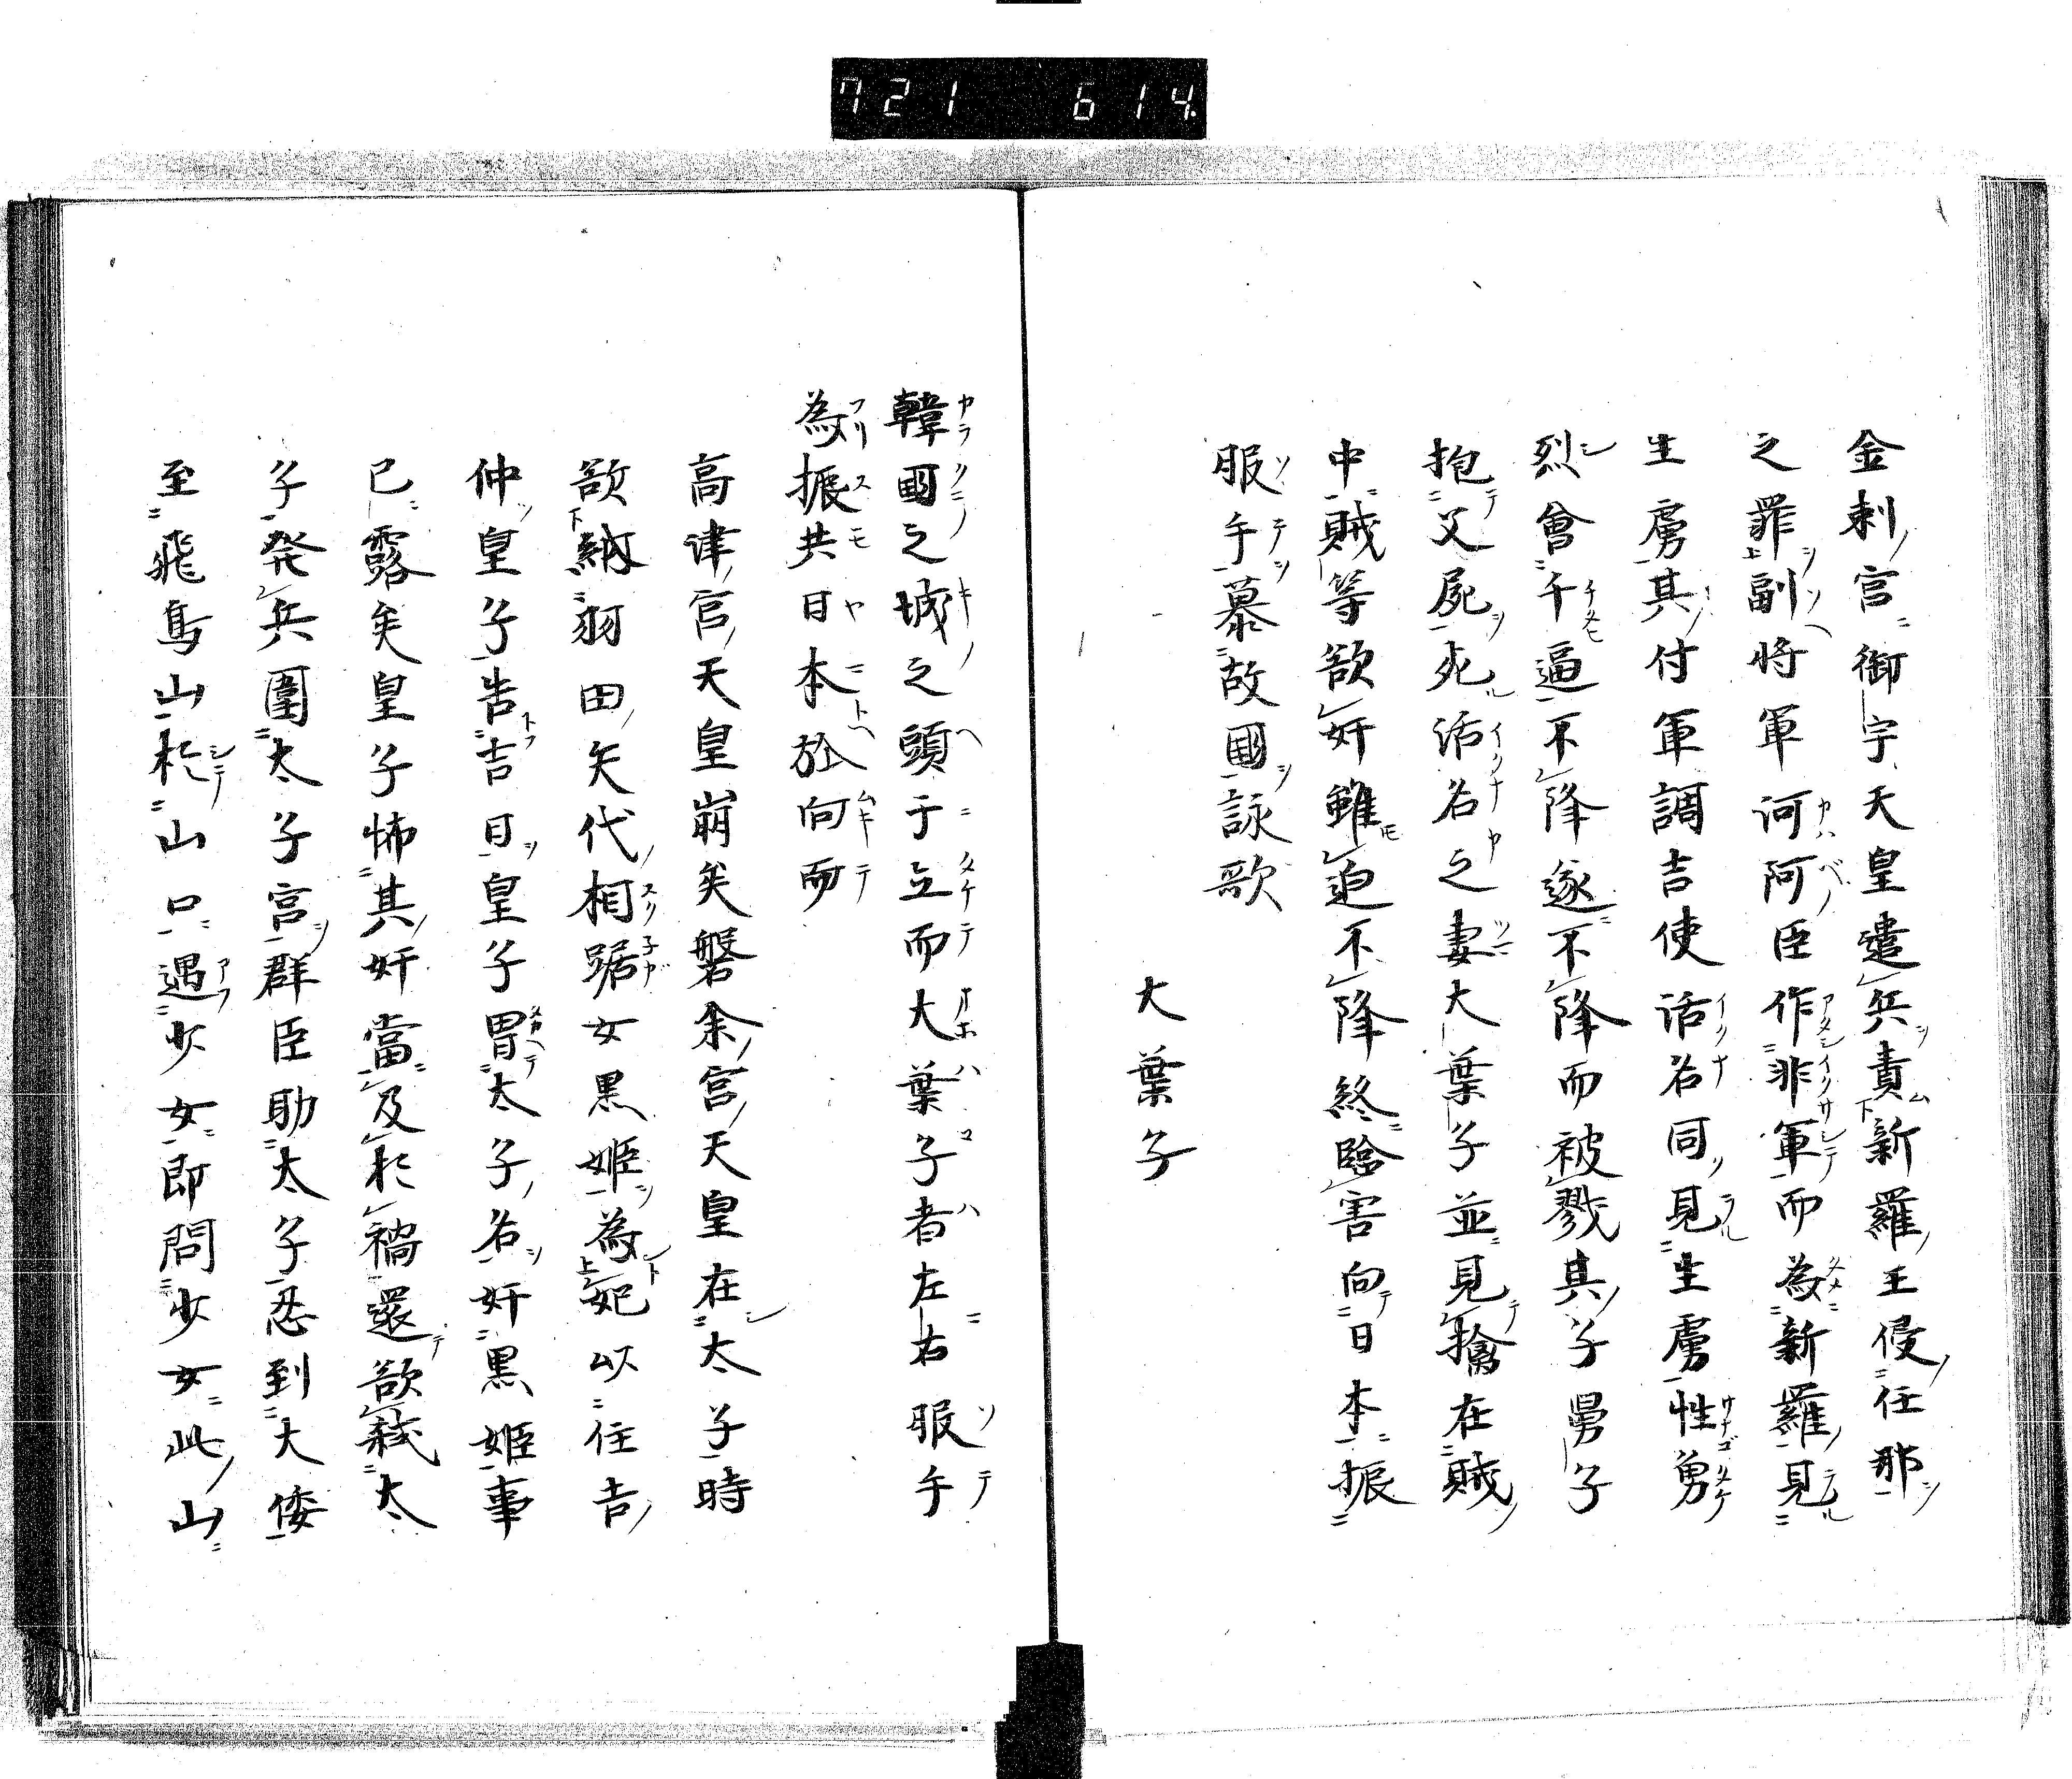 721 614
金刺宮御宇天皇遣兵責新羅王侵任那
之罪副将軍河阿臣作非軍而為新羅見
生虜其付軍調吉使活名同見生虜性勇
烈會千逼不降遂不降而被戮其子舅子
抱父屍死活名之妻大葉子並見擒在賊
中賊等欲奸雖迫不降終臨害向日本振
服手慕故國詠歌
大葉子
韓國之城之頭于立而大葉子者左右服手
為振共日本於向而
高津宮天皇崩矣磐余宮天皇在太子時
欲納羽田矢代相踞女黒姫為妃以住吉
仲皇子告吉日皇子冒太子名奸黒姫事
已露矣皇子怖其奸當及於禍還欲弑太
子発兵圍太子宮群臣助太子忍到大倭
至飛鳥山於山口遇少女即問少女此山